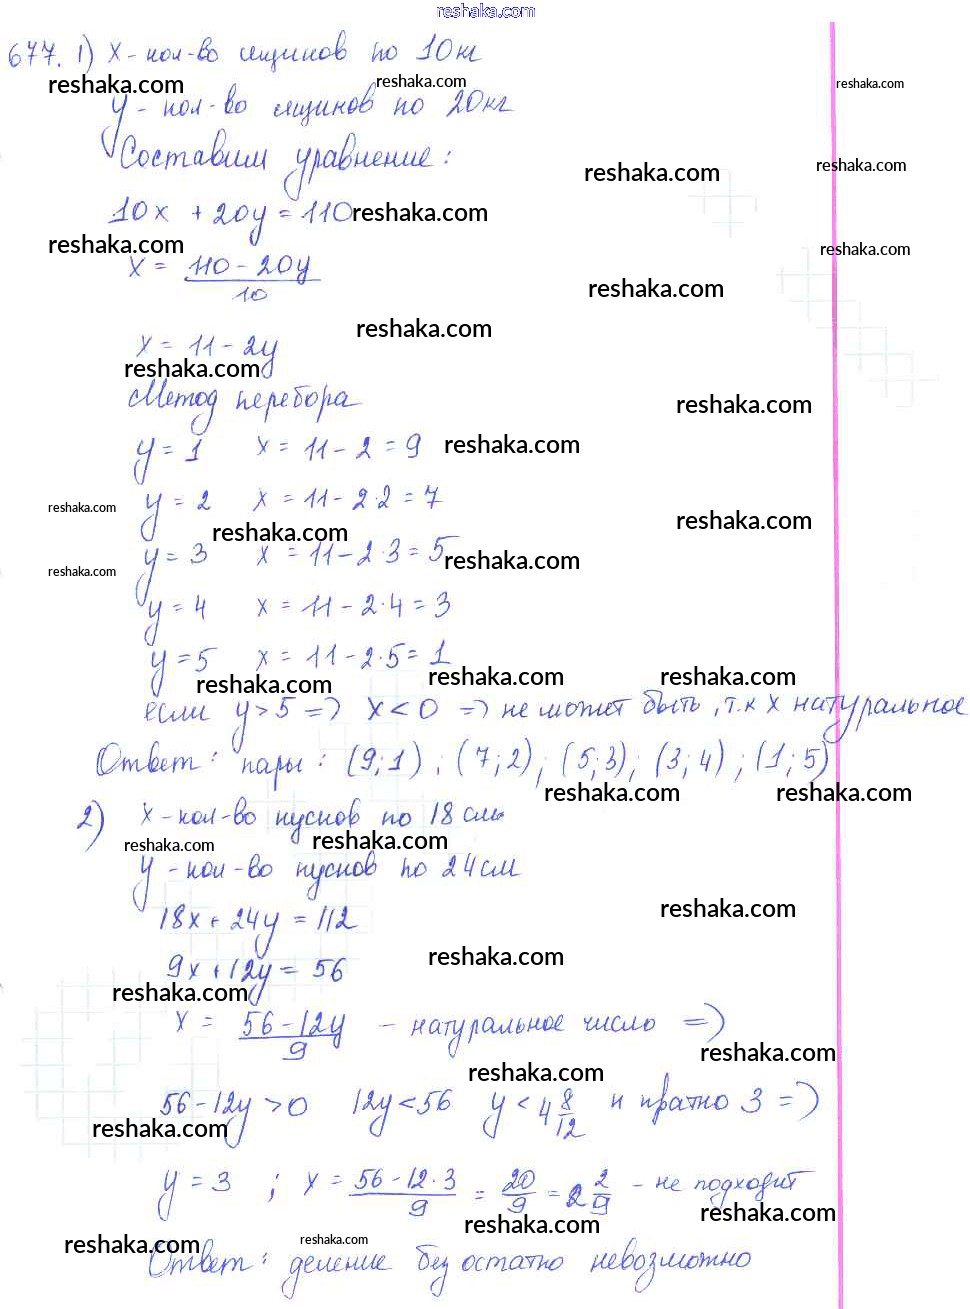 reshaka.com
677. 1) x - кол-во ящиков по 10 кг
reshaka.com reshaka.com reshaka.com
y - кол-во ящиков по 20 кг
Составим уравнение:
reshaka.com reshaka.com
10x + 20y = 110 reshaka.com
reshaka.com reshaka.com
x = (110 - 20y)/10
reshaka.com
reshaka.com
x = 11 - 2y
reshaka.com
Метод перебора
reshaka.com
y = 1 x = 11 - 2 = 9 reshaka.com
y = 2 x = 11 - 2·2 = 7
reshaka.com reshaka.com reshaka.com
y = 3 x = 11 - 2·3 = 5 reshaka.com
reshaka.com
y = 4 x = 11 - 2·4 = 3
y = 5 x = 11 - 2·5 = 1
reshaka.com reshaka.com reshaka.com
если y > 5 => x < 0 => не может быть, т.к x натуральное
Ответ: пары: (9;1); (7;2); (5;3); (3;4); (1;5)
reshaka.com reshaka.com
2) x - кол-во кусков по 18 см
reshaka.com reshaka.com
y - кол-во кусков по 24 см
18x + 24y = 112 reshaka.com
reshaka.com
9x + 12y = 56
reshaka.com
x = (56 - 12y)/9 - натуральное число =>
reshaka.com reshaka.com
56 - 12y > 0 12y < 56 y < 4 8/12 и кратно 3 =>
reshaka.com
y = 3 ; x = (56 - 12·3)/9 = 20/9 = 2 2/9 - не подходит
reshaka.com reshaka.com
reshaka.com reshaka.com
Ответ: деление без остатка невозможно